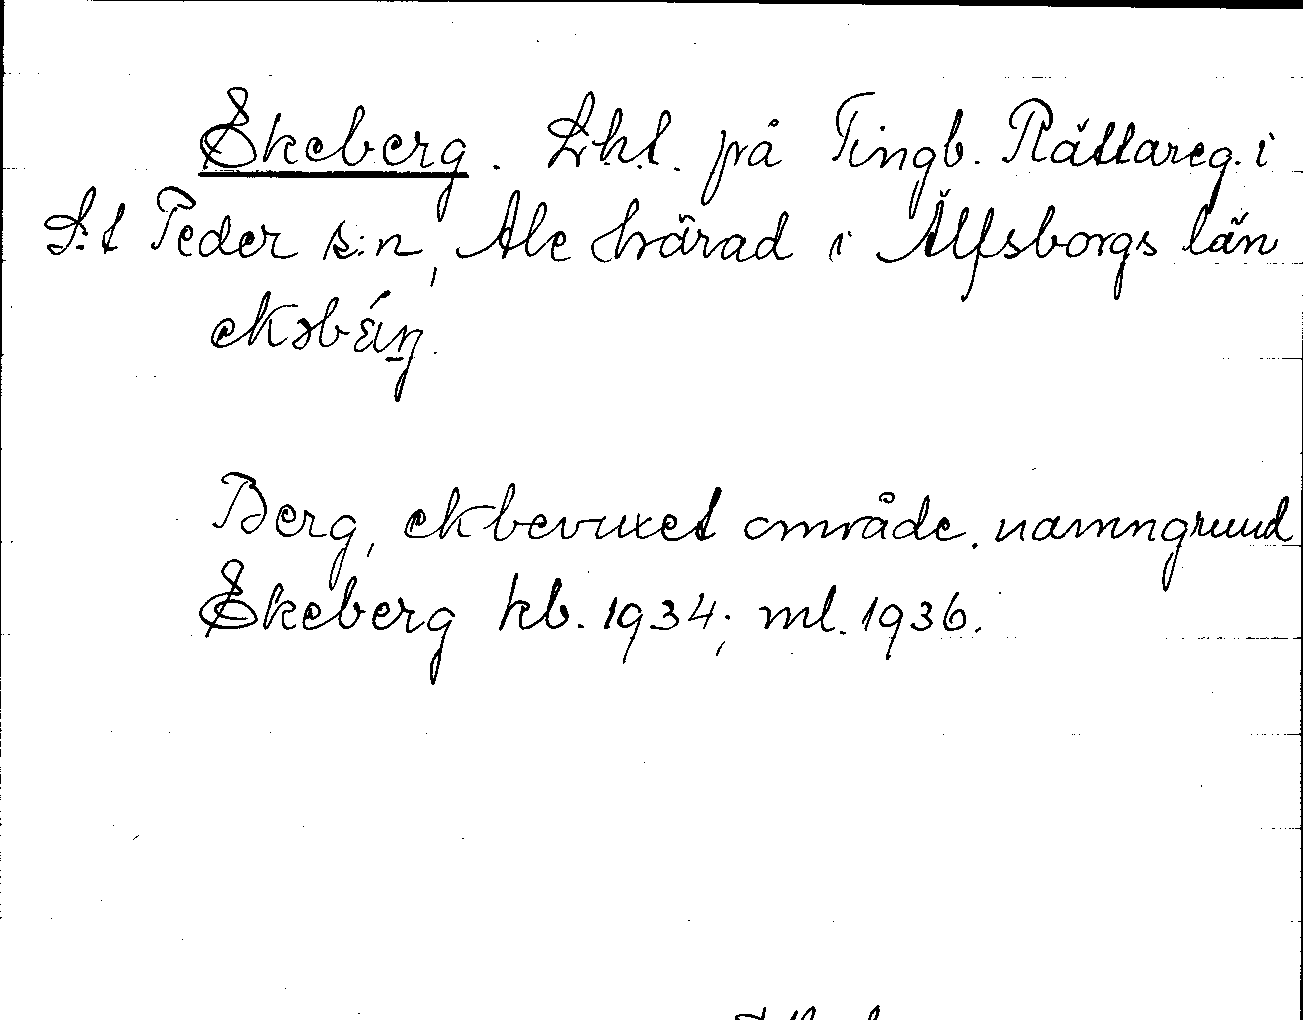 Ekeberg. Lht. på Tingb. Rättareg. i
S:t Peder s:n, Ale härad i Älfsborgs län
Berg, ekbevuxet område. namngrund
Ekeberg kb. 1934; ml. 1936.